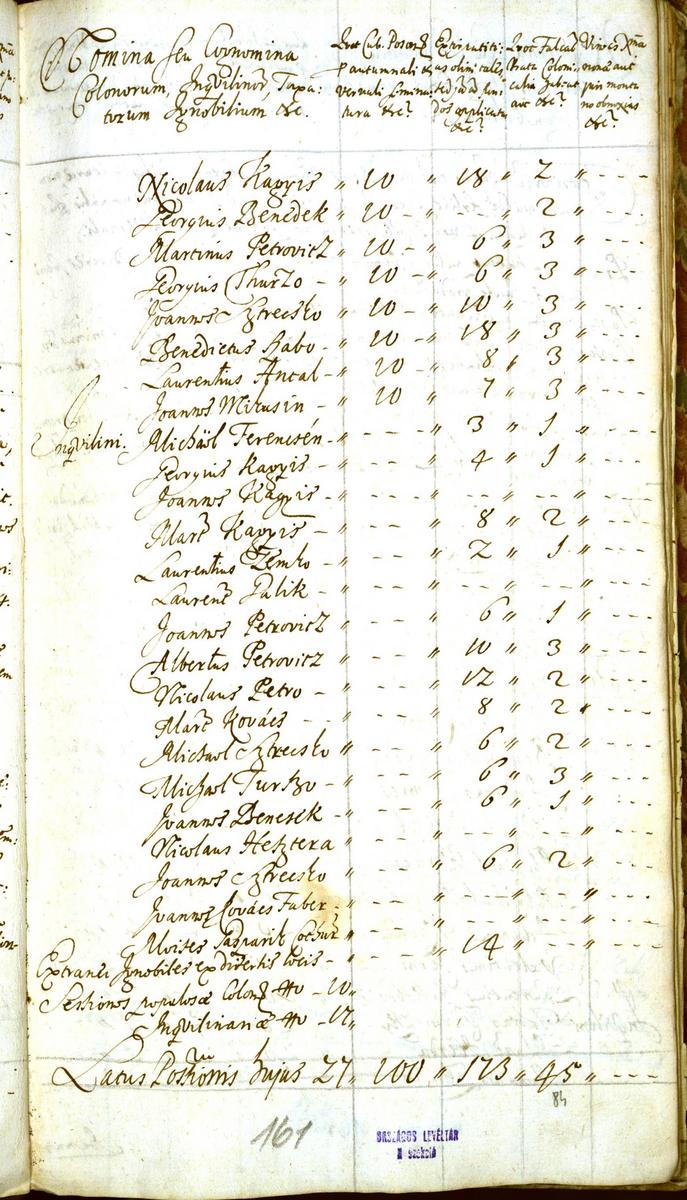 Nomina seu Cognomina
Colonorum, Inquilinor, Taxa:
torum Ignobilium &c.
Quot Cub. Poson
p autumnali &
vernali semina
tura &c.
Quot Falcat
Prata Coloni
calia
aut &c.
Vineas
nonae aut
juris monta
no obnoxias
&c.
Nicolaus Kagyis " 10 " 18 " 2 " - - -
Georgius Benedek " 10 - " - - " 2 " - - -
Martinus Petrovicz " 10 - " 6 " 3 " - - -
Georgius Thurzo - " 10 - " 6 " 3 " - - -
Joannes Sztrecsko " 10 - " 10 " 3 " - - -
Benedictus Babo - " 10 - " 18 " 3 " - - -
Laurentius Antal - " 10 - " 8 " 3 " - - -
Joannes Mikusin - " 10 " 7 " 3 " - - -
Inquilini. Michaël Ferencsén - " - - - " 3 " 1 " - - -
Georgius Kagyis " - - - " 4 " 1 " - - -
Joannes Kagyis - " - - - " - - " - - " - - -
Mart Kagyis - " - - - " 8 " 2 " - - -
Laurentius Zemko - " - - - " 2 " 1 " - - -
Laurent Palik - " - - - " - - " - - " - - -
Joannes Petrovicz " - - - " 6 " 1 " - - -
Albertus Petrovicz " - - - " 10 " 3 " - - -
Nicolaus Petro - " - - - " 12 " 2 " - - -
Mart Kovács - - " - - - " 8 " 2 " - - -
Michael Sztrecsko " - - - " 6 " 2 " - - -
Michael Turszo - " - - - " 6 " 3 " - - -
Joannes Benesek - " - - - " 6 " 1 " - - -
Nicolaus Hesztera " - - - " - - " - - " - - -
Joannes Sztrecsko " - - - " 6 " 2 " - - -
Joannes Kovács Faber - " - - - " - - " - - " - - -
Moises Gasparik " - - - " - - " - - " - - -
Extranei Ignobiles ex diversis locis - " - - - " 14 " - - " - - -
Sessiones populosae Colon - 10 "
Inquilinariae - 17 "
Latus Possionis hujus 27 " 100 " 173 " 45 " - - -
84
161
ORSZÁGOS LEVÉLTÁR